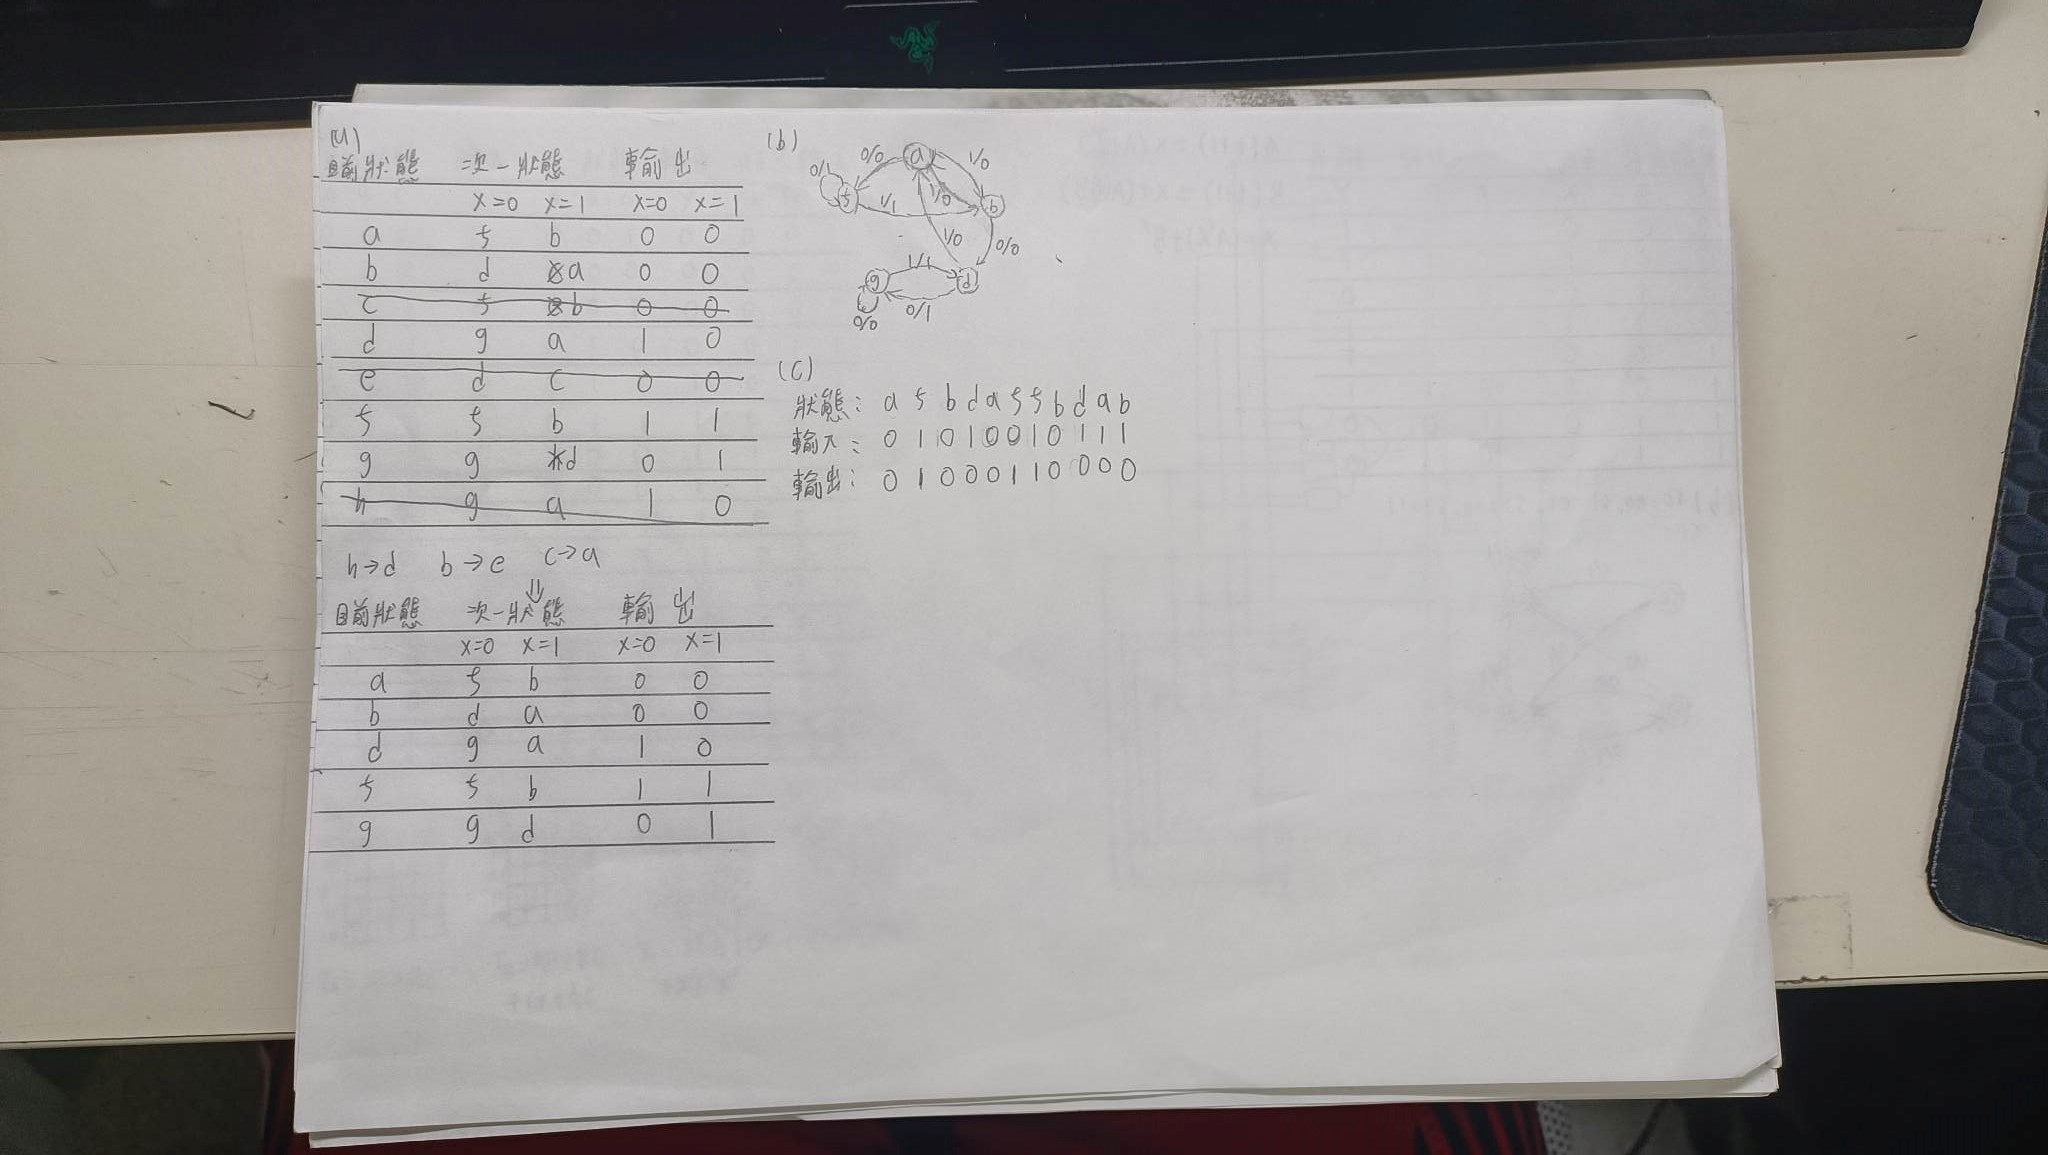 (a)
目前狀態 次一狀態 輸出
x=0 x=1 x=0 x=1
a f b 0 0
b d a 0 0
c f b 0 0
d g a 1 0
e d c 0 0
f f b 1 1
g g d 0 1
h g a 1 0
h→d b→e c→a
⇓
目前狀態 次一狀態 輸出
x=0 x=1 x=0 x=1
a f b 0 0
b d a 0 0
d g a 1 0
f f b 1 1
g g d 0 1
(b)
0/0 a 1/0
0/1 f 1/1 1/0 b
1/0 0/0
g 1/1 d
0/0 0/1
(c)
狀態: a f b d a f f b d a b
輸入: 0 1 0 1 0 0 1 0 1 1 1
輸出: 0 1 0 0 0 1 1 0 0 0 0